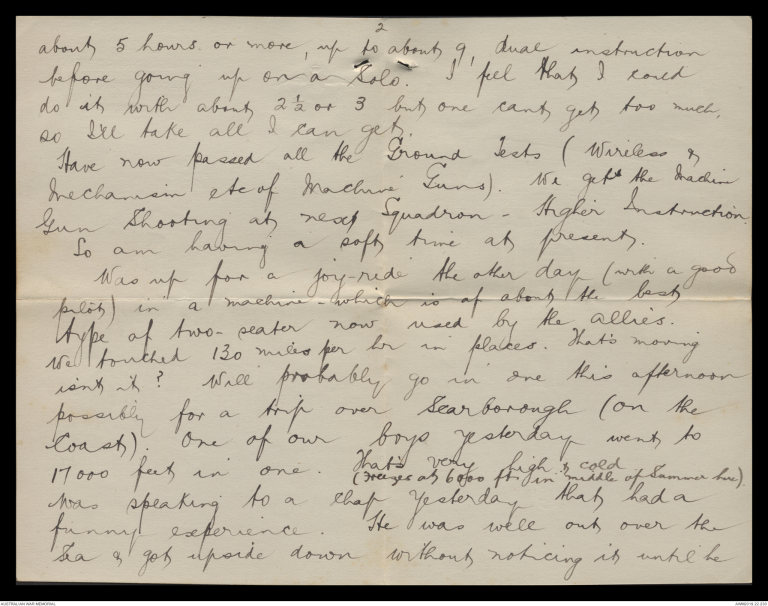 2
about 5 hours or more, up to about 9, dual instruction
before going up on a Solo. I feel that I could
do it with about 2½ or 3 but one cant get too much,
so I'll take all I can get.
Have now passed all the Ground Tests (Wireless &
Mechanism etc of Machine Guns). We get the Machine
Gun Shooting at next Squadron - Higher Instruction.
So am having a soft time at present.
Was up for a joy-ride the other day (with a good
pilot) in a machine - which is of about the best
type of two-seater now used by the allies.
We touched 130 miles per hr in places. That's moving
isnt it? Will probably go in one this afternoon
possibly for a trip over Scarborough (on the
Coast). One of our boys yesterday went to
17000 feet in one. That's very high & cold
(Freezes at 6000 ft. in middle of Summer here).
Was speaking to a chap yesterday that had a
funny experience. He was well out over the
Sea & got upside down without noticing it until he
AUSTRALIAN WAR MEMORIAL